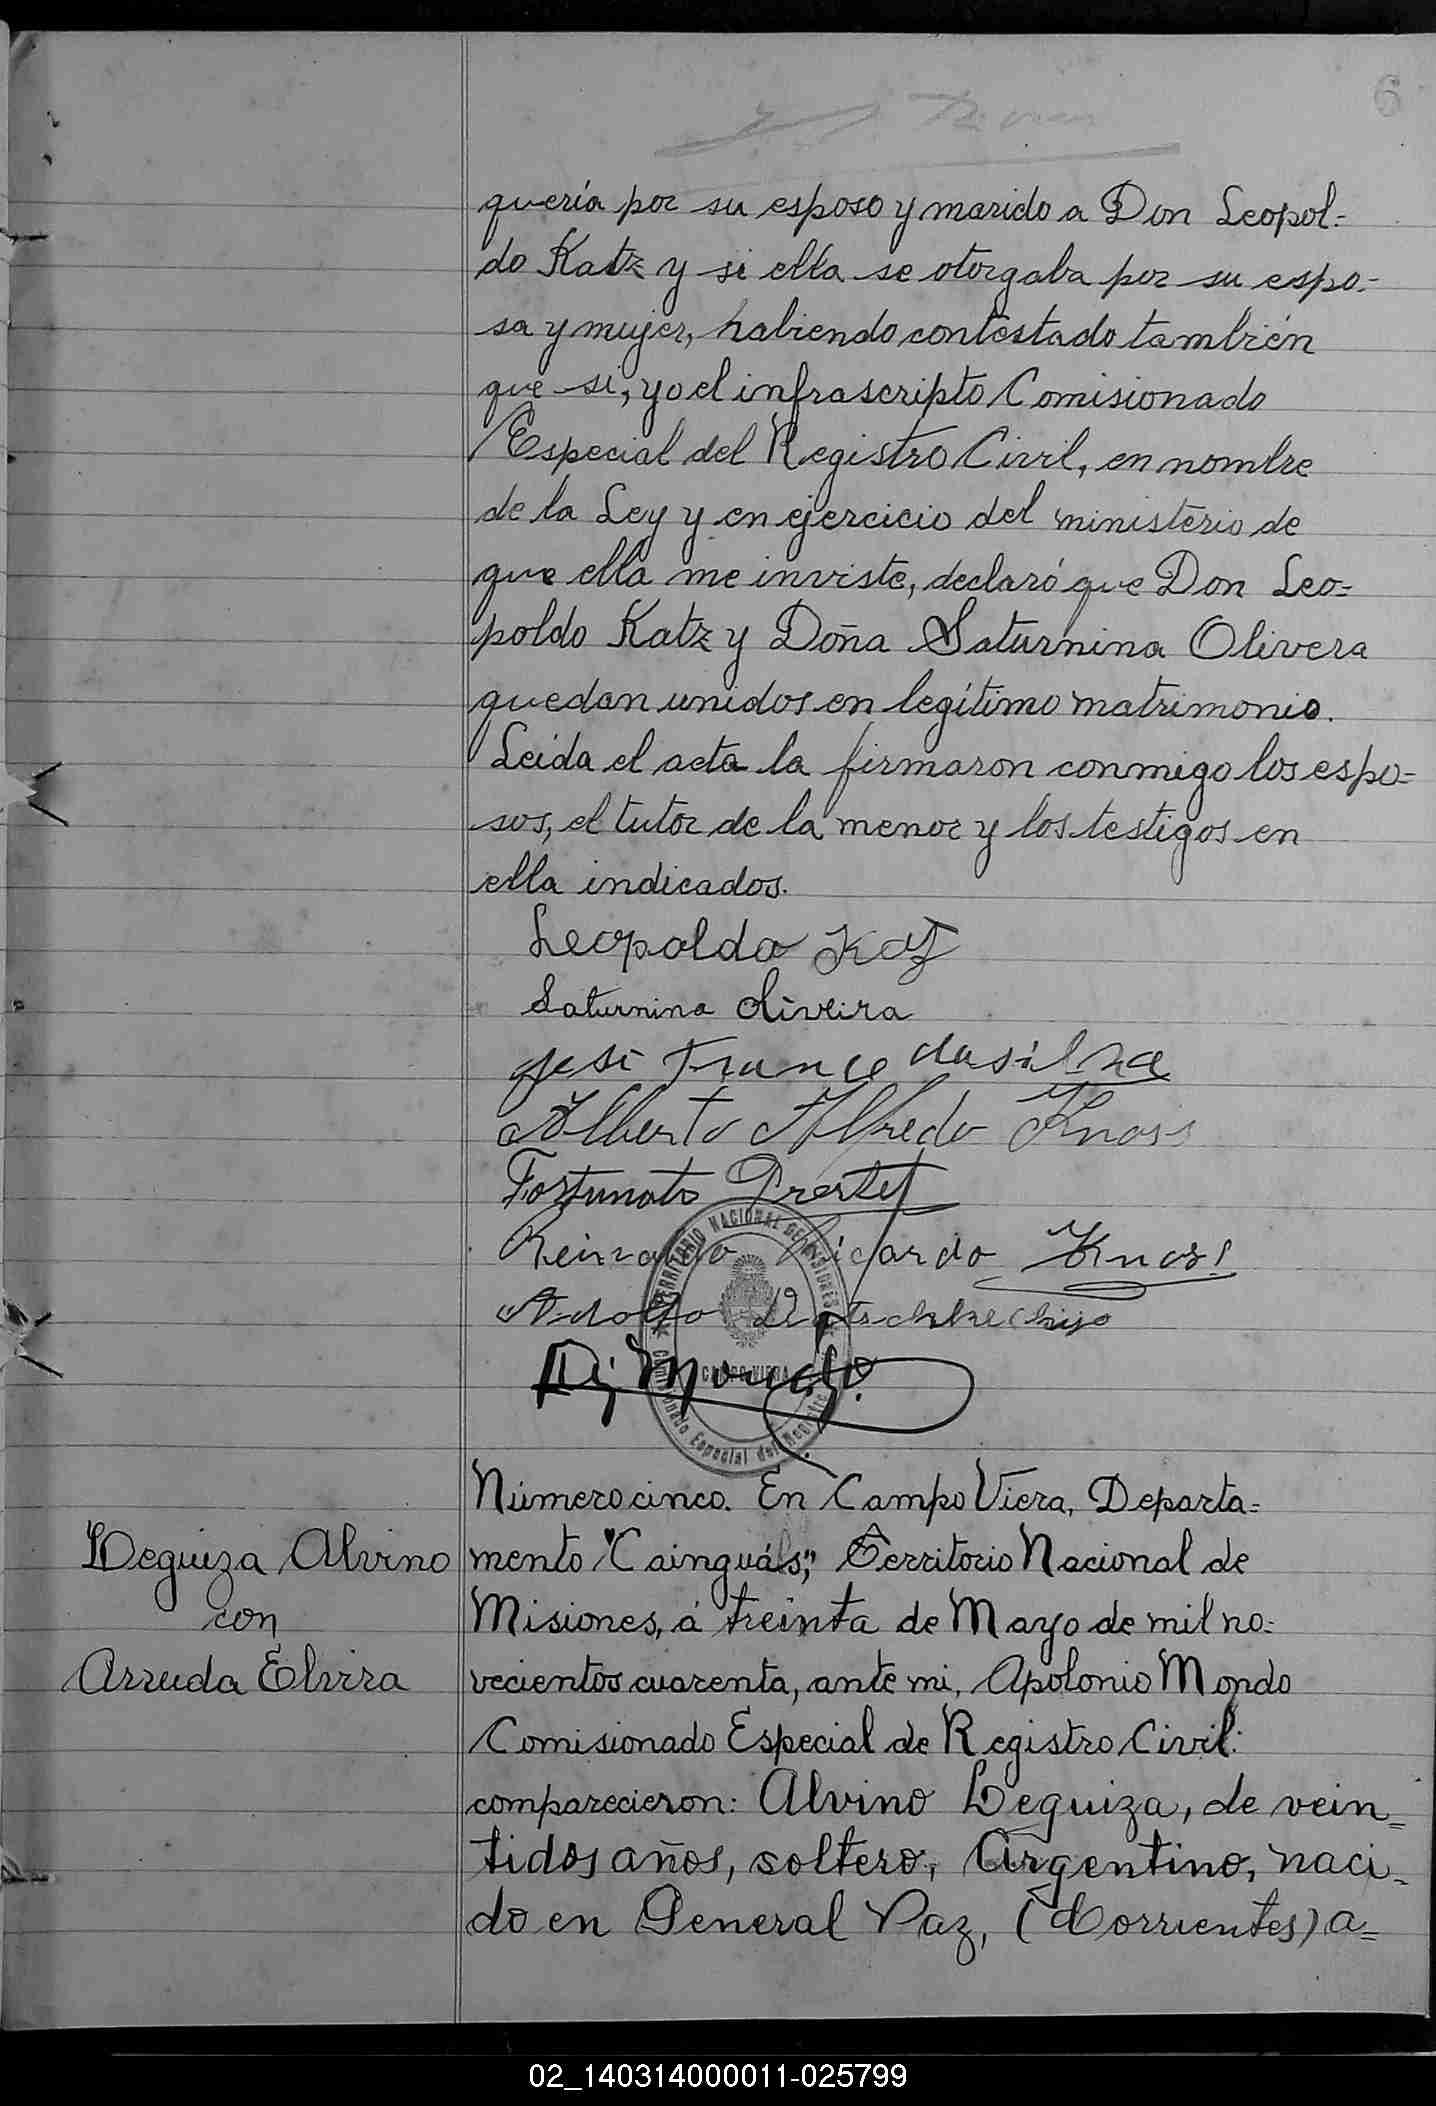 6
quería por su esposo y marido a Don Leopol=
do Katz y si ella se otorgaba por su espo=
sa y mujer, habiendo contestado también
que si, yo el infrascripto Comisionado
Especial del Registro Civil, en nombre
de la Ley y en ejercicio del ministerio de
que ella me inviste, declaró que Don Leo=
poldo Katz y Doña Saturnina Olivera
quedan unidos en legítimo matrimonio.
Leída el acta la firmaron conmigo los espo=
sos, el tutor de la menor y los testigos en
ella indicados.
Leopoldo Katz
Saturnina Oliveira
José Franco da silva
Alberto Alfredo Knass
Fortunato Prestes
Reinaldo Ricardo Knass
Adolfo (hijo
TERRITORIO NACIONAL DE MISIONES
CAMPO VIERA
Comisionado Especial del Registro
Ap. Mondo.
Número cinco. En Campo Viera, Departa=
Leguiza Alvino
mento "Cainguás", Territorio Nacional de
con
Misiones, á treinta de Mayo de mil no=
Arruda Elvira
vecientos cuarenta, ante mi, Apolonio Mondo
Comisionado Especial de Registro Civil:
comparecieron: Alvino Leguiza, de vein=
tidos años, soltero, Argentino, naci=
do en General Paz, (Corrientes) a=
02_140314000011-025799